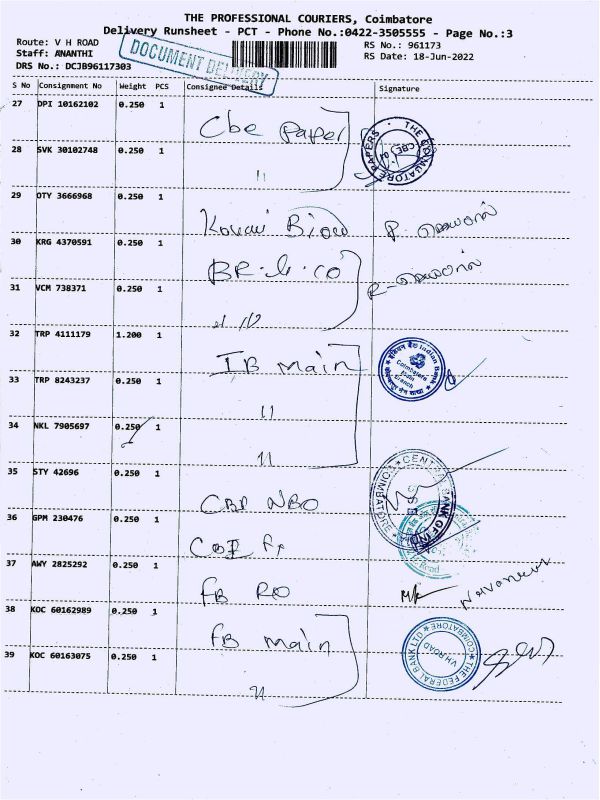 THE PROFESSIONAL COURIERS, Coimbatore
Delivery Runsheet - PCT - Phone No.:0422-3505555 - Page No.:3
Route: V H ROAD
Staff: ANANTHI
DRS No.: DCJB96117303
DOCUMENT DELIVERY
RS No.: 961173
RS Date: 18-Jun-2022
S No Consignment No Weight PCS Consignee Details Signature
27 DPI 10162102 0.250 1 Cbe Paper
THE COIMBATORE PAPERS
28 SVK 30102748 0.250 1 "
29 OTY 3666968 0.250 1
30 KRG 4370591 0.250 1
31 VCM 738371 0.250 1
32 TRP 4111179 1.200 1 IB main
Indian Bank Coimbatore Main Branch
33 TRP 8243237 0.250 1 "
34 NKL 7905697 0.250 1 "
35 STY 42696 0.250 1
CENTRAL BANK OF INDIA COIMBATORE
36 GPM 230476 0.250 1
Road
37 AWY 2825292 0.250 1 FB RO
38 KOC 60162989 0.250 1 FB main
THE FEDERAL BANK LTD VH ROAD COIMBATORE
39 KOC 60163075 0.250 1 "